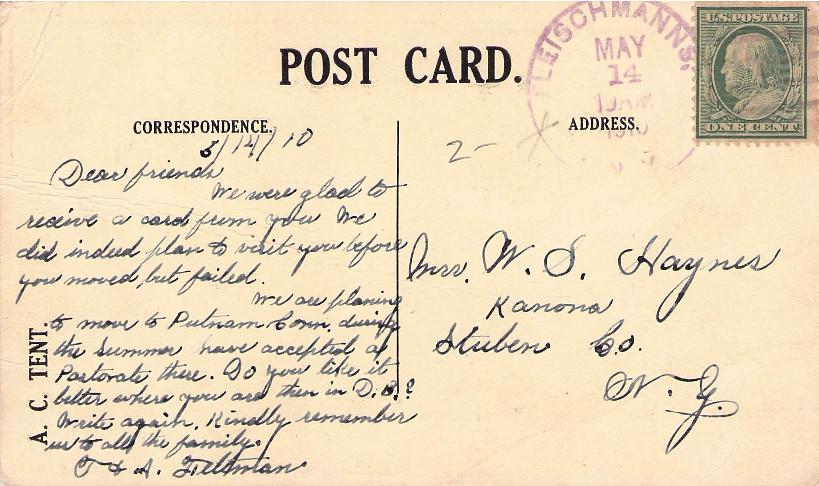 POST CARD.
FLEISCHMANNS,
MAY
14
10 AM
1910
N.Y.
U.S. POSTAGE
ONE CENT
CORRESPONDENCE.
ADDRESS.
2-
5/14/10
Dear friends
We were glad to
receive a card from you We
did indeed plan to visit you before
you moved, but failed.
We are planing
to move to Putnam Conn. during
the Summer have accepted a
Pastorate there. Do you like it
better where you are then in D. B.?
Write again. Kindly remember
us to all the family.
T & A. Feltman
Mrs. W. S. Haynes
Kanona
Stuben Co.
N. Y.
A. C. TENT.